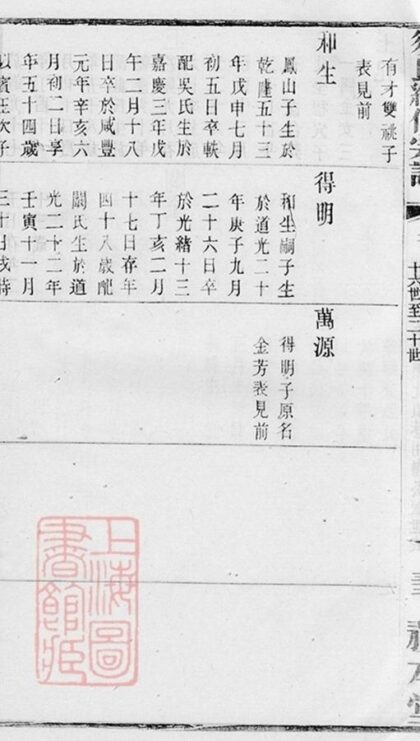 廿六世至三十世
有才雙祧子
表見前
和生
鳳山子生於
乾隆五十三
年戊申七月
初五日卒軼
配吳氏生於
嘉慶三年戊
午二月十八
日卒於咸豐
元年辛亥六
月初二日享
年五十四歲
以賓次子
得明
和生嗣子生
於道光二十
年庚子九月
二十六日卒
於光緒十三
年丁亥二月
十七日存年
四十八歲配
闕氏生於道
光二十二年
壬寅十一月
三十日戌時
萬源
得明子原名
金芳表見前
上海圖
書館藏